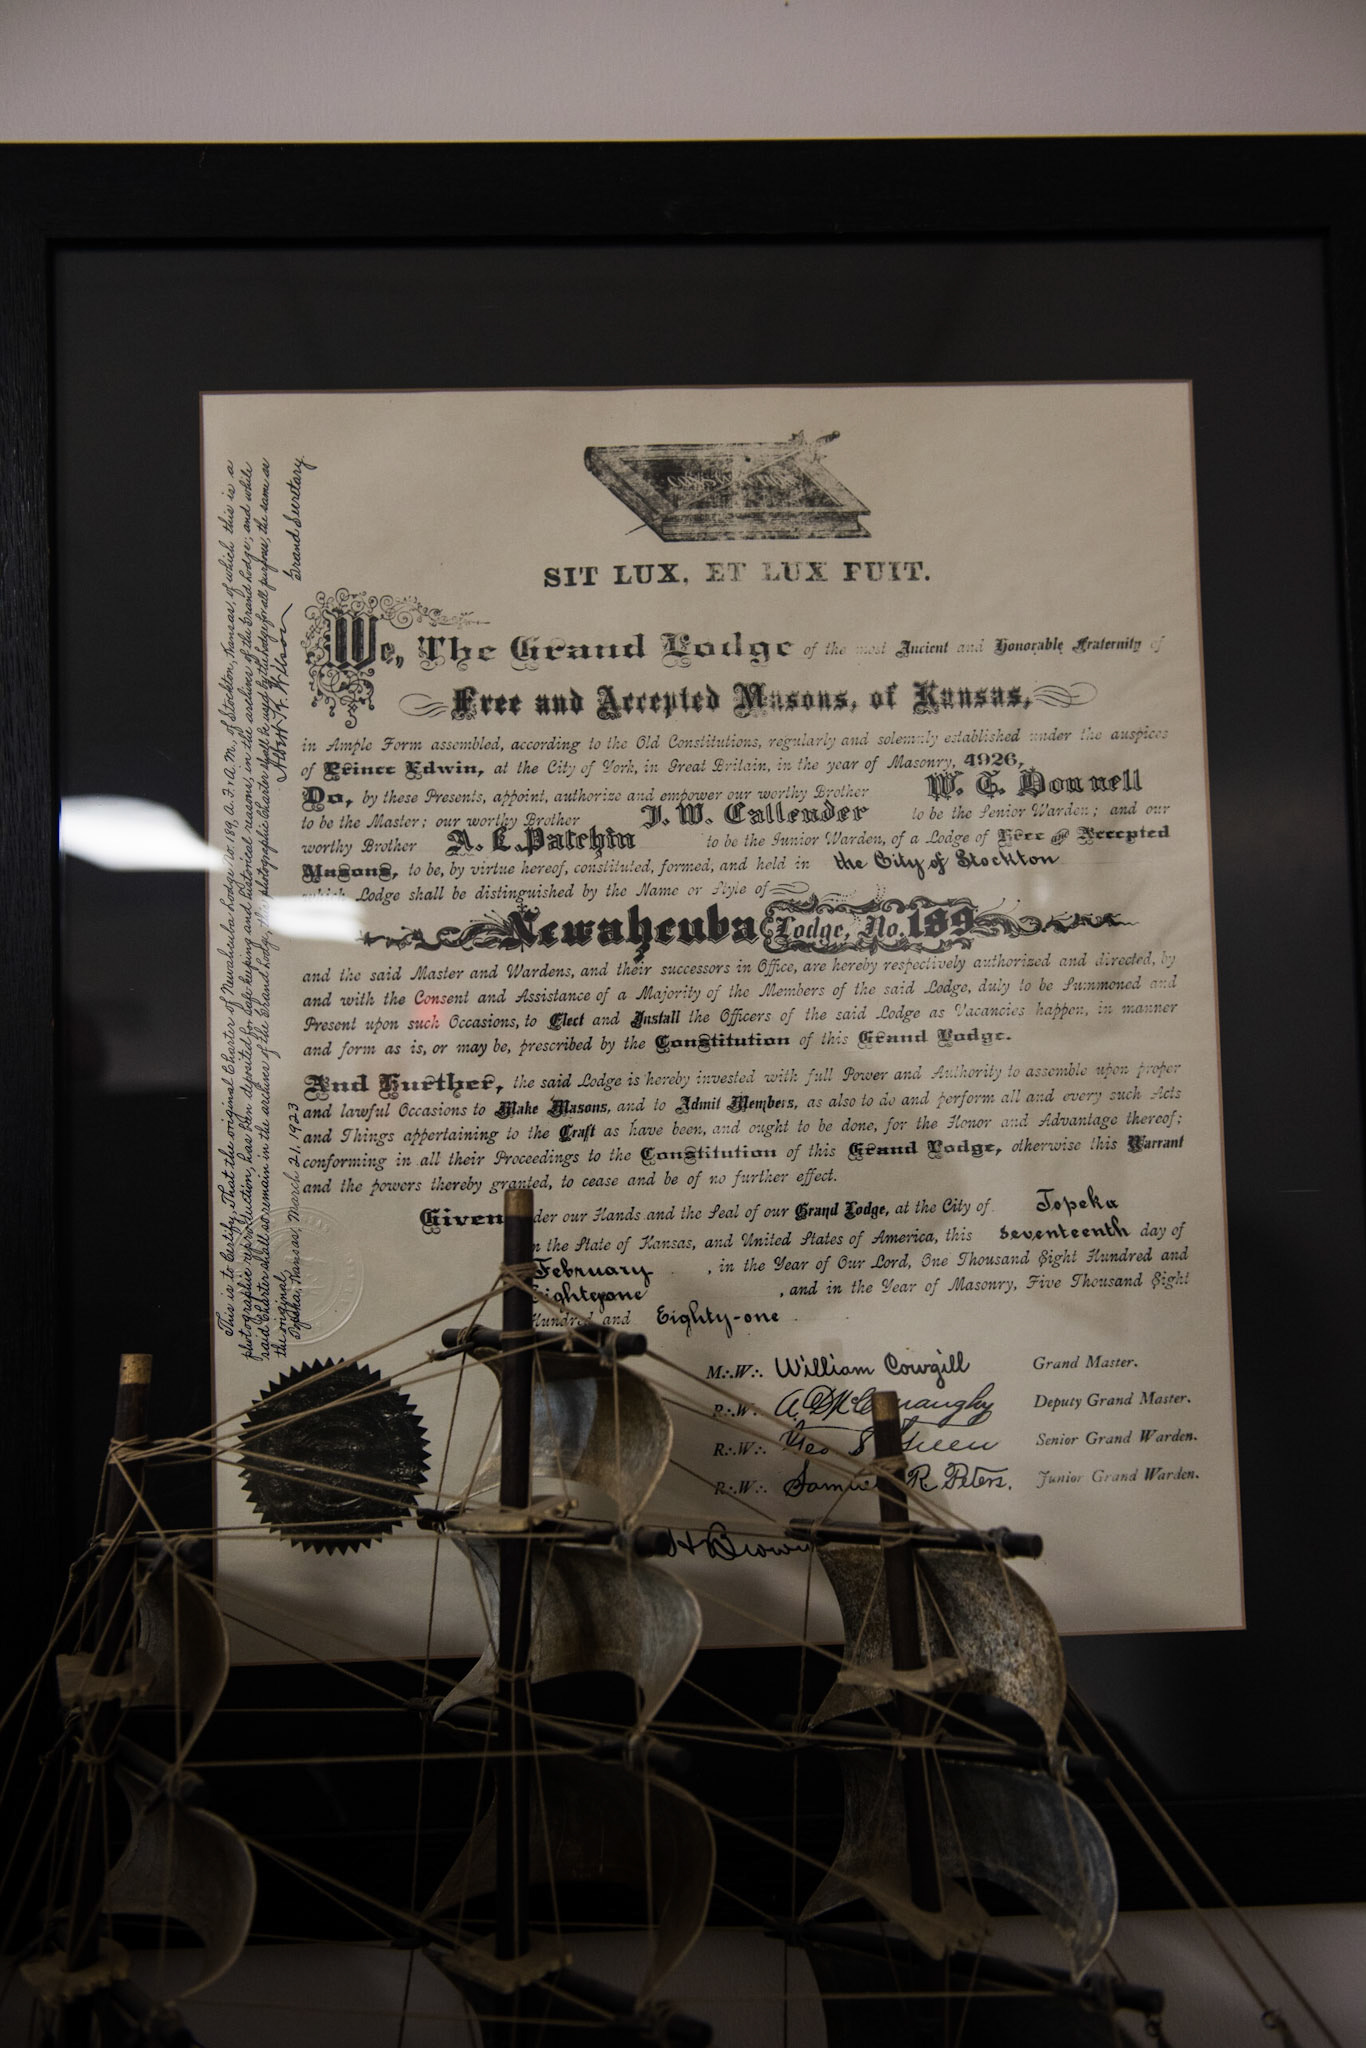 SIT LUX, ET LUX FUIT.
We, The Grand Lodge of the most Ancient and Honorable Fraternity of
Free and Accepted Masons, of Kansas,
in Ample Form assembled, according to the Old Constitutions, regularly and solemnly established under the auspices
of Prince Edwin, at the City of York, in Great Britain, in the year of Masonry, 4926,
Do, by these Presents, appoint, authorize and empower our worthy Brother W. G. Donnell
to be the Master; our worthy Brother J. W. Callender to be the Senior Warden; and our
worthy Brother A. L. Patchin to be the Junior Warden, of a Lodge of Free and Accepted
Masons, to be, by virtue hereof, constituted, formed, and held in the City of Stockton
which Lodge shall be distinguished by the Name or Style of
Newahcuba Lodge, No. 189
and the said Master and Wardens, and their successors in Office, are hereby respectively authorized and directed, by
and with the Consent and Assistance of a Majority of the Members of the said Lodge, duly to be Summoned and
Present upon such Occasions, to Elect and Install the Officers of the said Lodge as Vacancies happen, in manner
and form as is, or may be, prescribed by the Constitution of this Grand Lodge.
And Further, the said Lodge is hereby invested with full Power and Authority to assemble upon proper
and lawful Occasions to Make Masons, and to Admit Members, as also to do and perform all and every such Acts
and Things appertaining to the Craft as have been, and ought to be done, for the Honor and Advantage thereof;
conforming in all their Proceedings to the Constitution of this Grand Lodge, otherwise this Warrant
and the powers thereby granted, to cease and be of no further effect.
Given der our Hands and the Seal of our Grand Lodge, at the City of Topeka
in the State of Kansas, and United States of America, this seventeenth day of
February , in the Year of Our Lord, One Thousand Eight Hundred and
Eightyone , and in the Year of Masonry, Five Thousand Eight
Hundred and Eighty-one
M∴W∴ William Cowgill Grand Master.
R∴W∴ Deputy Grand Master.
R∴W∴ Geo S Green Senior Grand Warden.
R∴W∴ Samuel R Peters. Junior Grand Warden.
H Brown
This is to certify, That the original Charter of Newahcuba Lodge No. 189, A.F.&A.M., of Stockton, Kansas, of which this is a
photographic reproduction, has been deposited for safe keeping and historical reasons, in the archives of the Grand Lodge; and while
said Charter shall so remain in the archives of the Grand Lodge, this photographic Charter shall be used by the Lodge for all purposes, the same as
the original.
Topeka, Kansas, March 21, 1923 Albert K. Wilson Grand Secretary.